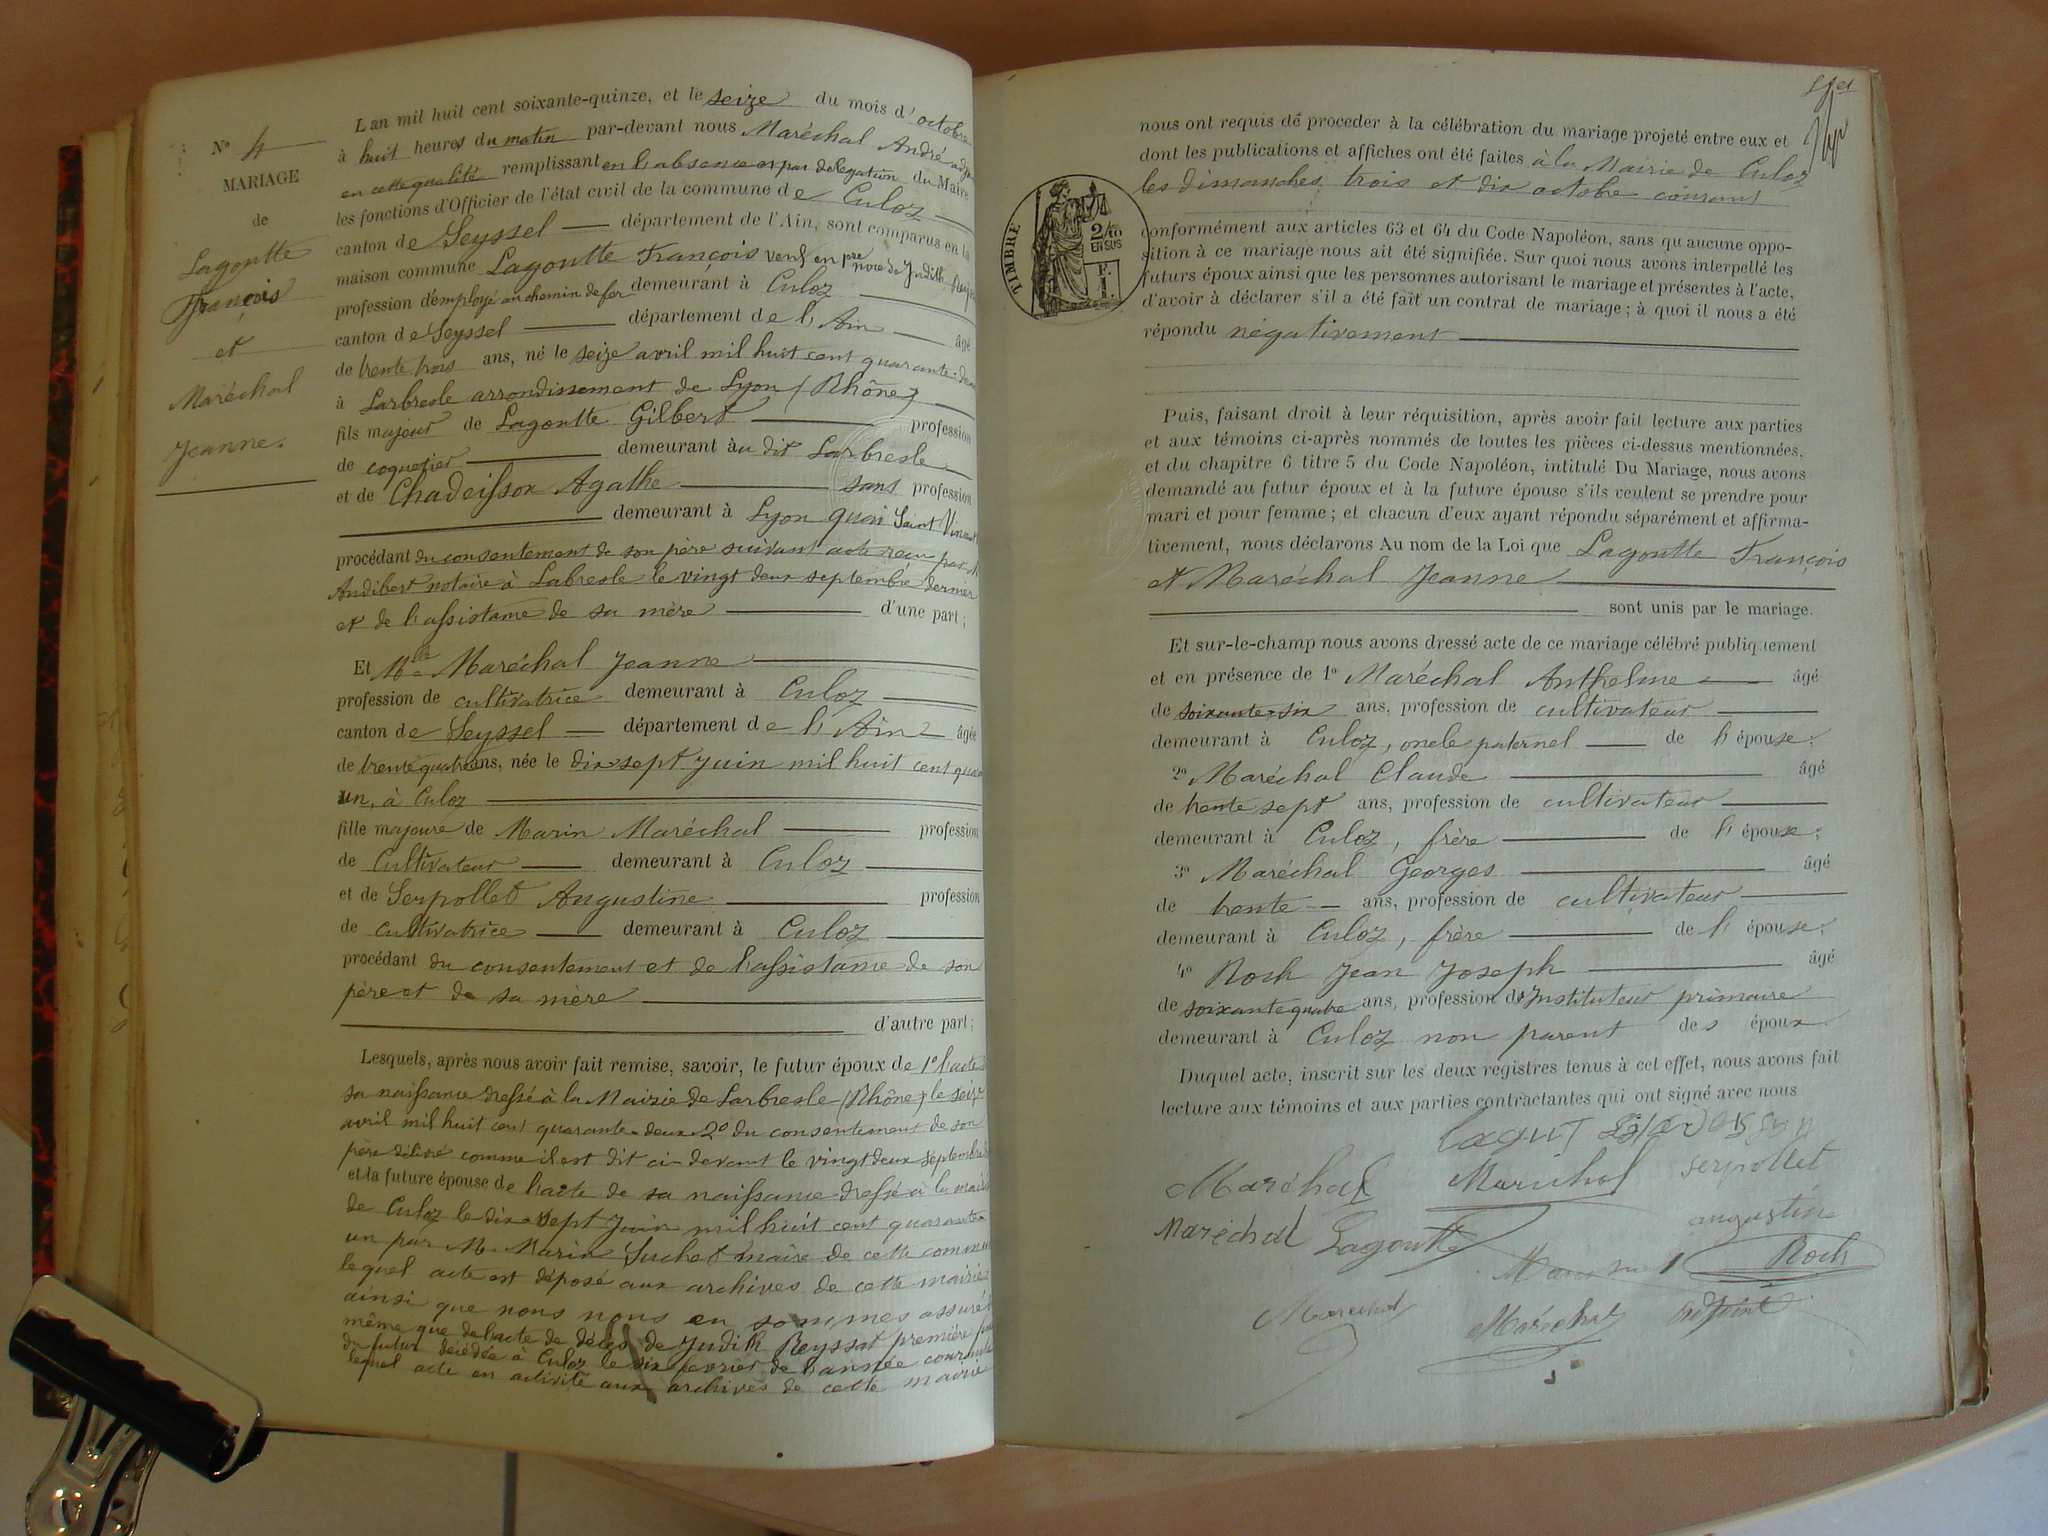 N° 4
MARIAGE
de
Lagoutte
François
et
Maréchal
Jeanne.
L an mil huit cent soixante-quinze, et le seize du mois d'octobre
à huit heures du matin par-devant nous Maréchal André adj
en cette qualité remplissant en l'absence et par délégation du Maire
les fonctions d'Officier de l'état civil de la commune de Culoz
canton de Seyssel département de l'Ain, sont comparus en la
maison commune Lagoutte François veuf en pre noce de Judith
profession d'employé au chemin de fer demeurant à Culoz
canton de Seyssel département de l'Ain âgé
de trente trois ans, né le seize avril mil huit cent quarante-deux
à Larbresle arrondissement de Lyon (Rhône)
fils majeur de Lagoutte Gilbert profession
de coquetier demeurant au dit Larbresle
et de Chadeisson Agathe sans profession
demeurant à Lyon quai Saint Vincent
procédant du consentement de son père suivant acte reçu par M
Audibert notaire à Labresle le vingt deux septembre dernier
et de l'assistance de sa mère d'une part;
Et Mlle Maréchal Jeanne
profession de cultivatrice demeurant à Culoz
canton de Seyssel département de l'Ain âgée
de trente quatre ans, née le dix sept Juin mil huit cent quar
un, à Culoz
fille majeure de Marin Maréchal profession
de Cultivateur demeurant à Culoz
et de Serpollet Augustine profession
de cultivatrice demeurant à Culoz
procédant du consentement et de l'assistance de son
père et de sa mère
d'autre part;
Lesquels, après nous avoir fait remise, savoir, le futur époux de 1° l'acte
sa naissance dressé à la Mairie de Larbresle (Rhône) le seize
avril mil huit cent quarante-deux 2° du consentement de son
père délivré comme il est dit ci-devant le vingt deux septembre
et la future épouse de l'acte de sa naissance dressé à la mairie
de Culoz le dix sept Juin mil huit cent quarante
un par M. Marin Suchet maire de cette commune
lequel acte est déposé aux archives de cette mairie
ainsi que nous nous en sommes assuré
même que de l'acte de décès de Judith Reyssat première
du futur décédée à Culoz le six février de l'année courante
lequel acte en activité aux archives de cette mairie
nous ont requis de proceder à la célébration du mariage projeté entre eux et
dont les publications et affiches ont été faites à la Mairie de Culoz
les dimanches trois et dix octobre courant
TIMBRE
2/10
EN SUS
conformément aux articles 63 et 64 du Code Napoléon, sans qu aucune oppo-
sition à ce mariage nous ait été signifiée. Sur quoi nous avons interpellé les
futurs époux ainsi que les personnes autorisant le mariage et présentes à l'acte,
d'avoir à déclarer s'il a été fait un contrat de mariage; à quoi il nous a été
répondu négativement
Puis, faisant droit à leur réquisition, après avoir fait lecture aux parties
et aux témoins ci-après nommés de toutes les pièces ci-dessus mentionnées,
et du chapitre 6 titre 5 du Code Napoléon, intitulé Du Mariage, nous avons
demandé au futur époux et à la future épouse s'ils veulent se prendre pour
mari et pour femme; et chacun d'eux ayant répondu séparément et affirma-
tivement, nous déclarons Au nom de la Loi que Lagoutte François
et Maréchal Jeanne
sont unis par le mariage.
Et sur-le-champ nous avons dressé acte de ce mariage célébré publiquement
et en présence de 1° Maréchal Anthelme âgé
de soixante-six ans, profession de cultivateur
demeurant à Culoz, oncle paternel de l'épouse;
2° Maréchal Claude âgé
de trente sept ans, profession de cultivateur
demeurant à Culoz, frère de l'épouse;
3° Maréchal Georges âgé
de trente ans, profession de cultivateur
demeurant à Culoz, frère de l'épouse;
4° Roch Jean Joseph âgé
de soixante quatre ans, profession d'Instituteur primaire
demeurant à Culoz non parent des époux
Duquel acte, inscrit sur les deux registres tenus à cet effet, nous avons fait
lecture aux témoins et aux parties contractantes qui ont signé avec nous
Maréchal Maréchal serpollet
augustine
Maréchal Lagoutte
Roch
Maréchal Maréchal adjoint